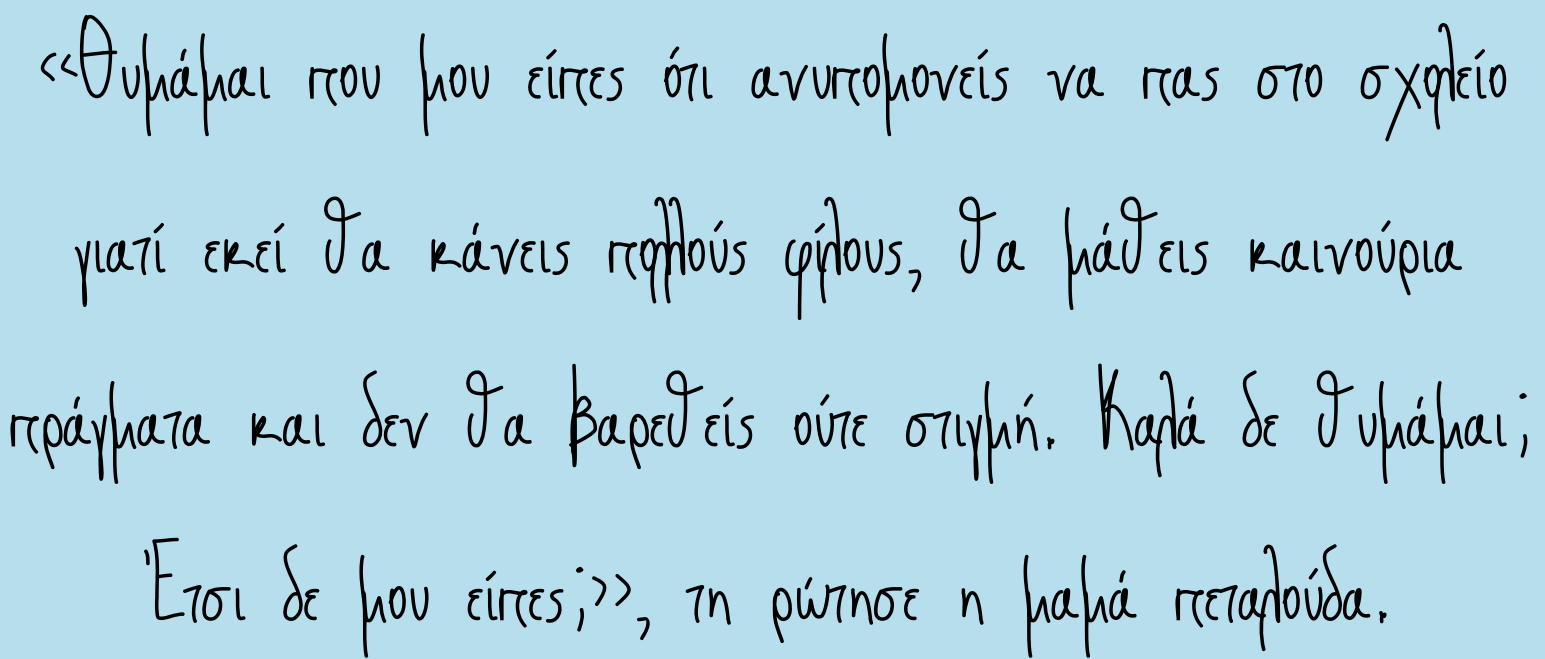 <<Θυμάμαι που μου είπες ότι ανυπομονείς να πας στο σχολείο
γιατί εκεί θα κάνεις πολλούς φίλους, θα μάθεις καινούρια
πράγματα και δεν θα βαρεθείς ούτε στιγμή. Καλά δε θυμάμαι;
Έτσι δε μου είπες;>>, τη ρώτησε η μαμά πεταλούδα.